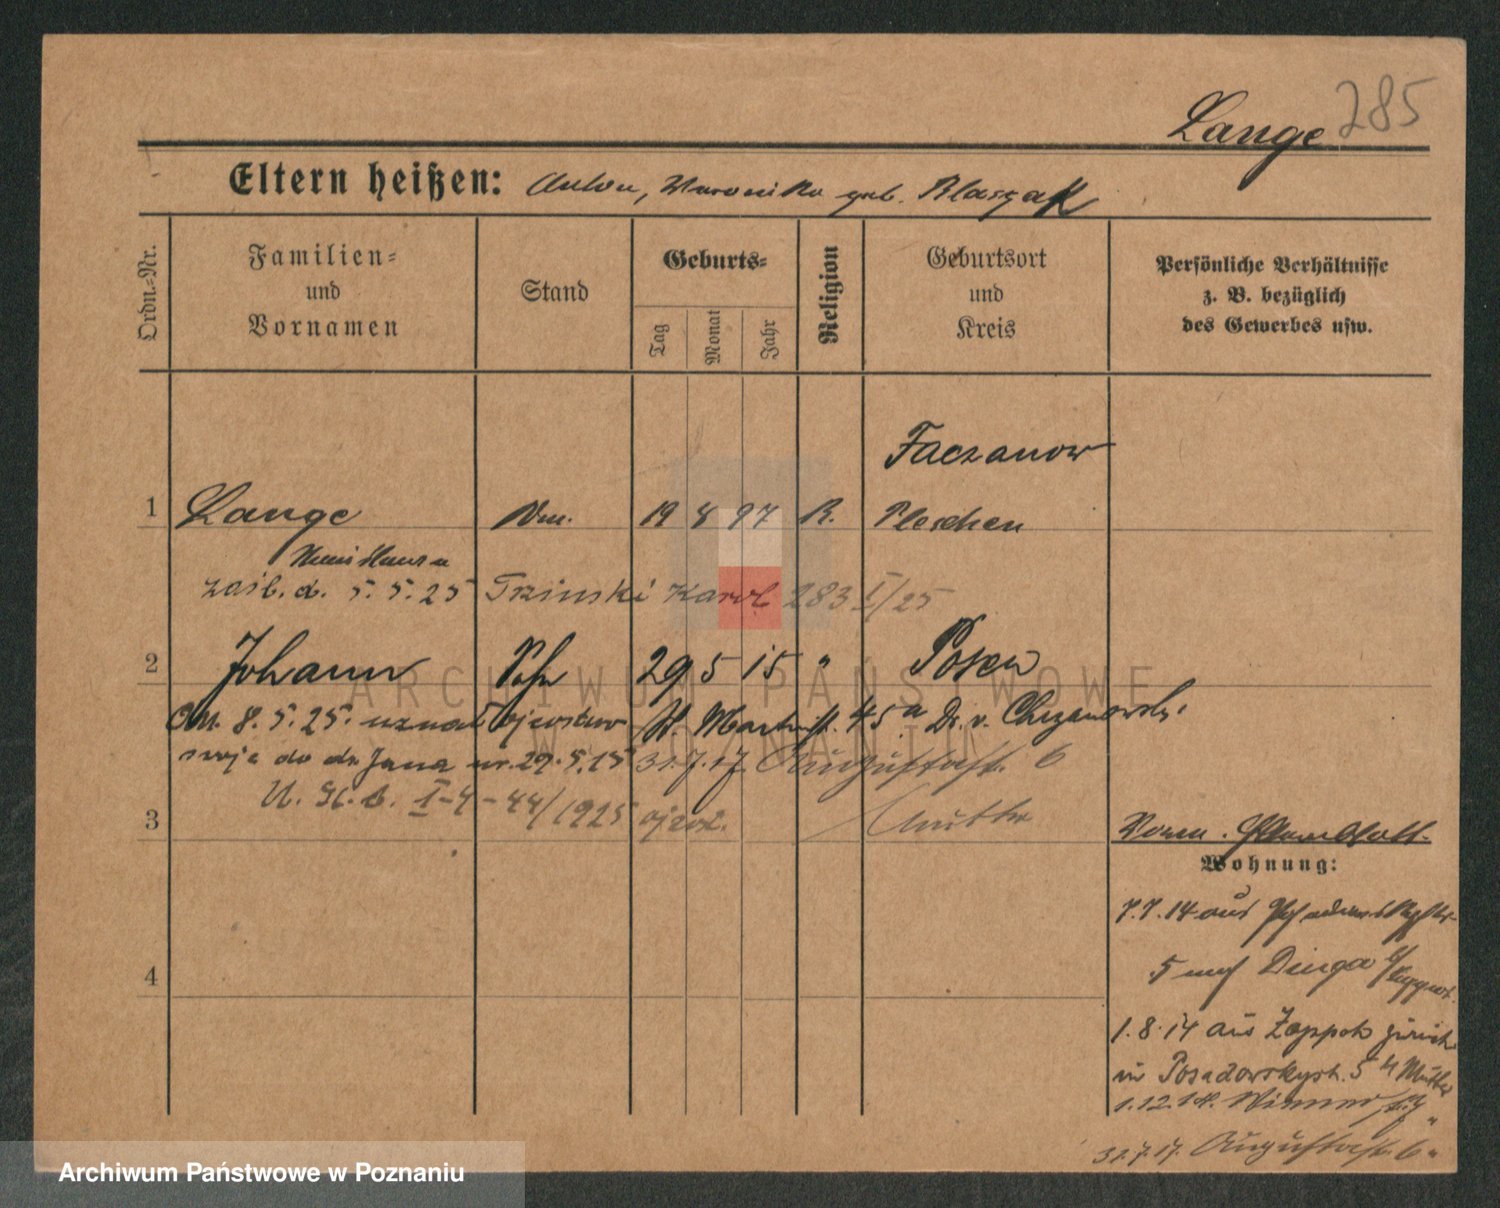 285
Lange
Eltern heißen: Anton, Weronika geb. Blaszak
Ordn.-Nr.
Familien-
und
Vornamen
Stand
Geburts-
Tag
Monat
Jahr
Religion
Geburtsort
und
Kreis
Persönliche Verhältnisse
z. B. bezüglich
des Gewerbes usw.
Faczanow
1 Lange 19 8 97 R. Pleschen
Stanislawa
zaśl. d. 5. 5. 25 Trzinski Karol 283 I/25
2 Johann Sohn 29 5 15 " Posen
8. 5. 25. uznał ojcostwo St. Martinstr. 45a Dr. v. Chrzanowski
swoje do dz. Jana ur. 29.5.15 31.7.17 Augustastr. 6
U. St. C. I-4-44/1925 ojcost. Mutter
3
Wohnung:
7.7.14 aus
5 auf
4
1.8.14 aus Zoppot zurück
in Posadowskystr. 5 Mutter
1.12.14.
31.7.17. Augustastr. 6 "
ARCHIWUM PAŃSTWOWE
W POZNANIU
Archiwum Państwowe w Poznaniu